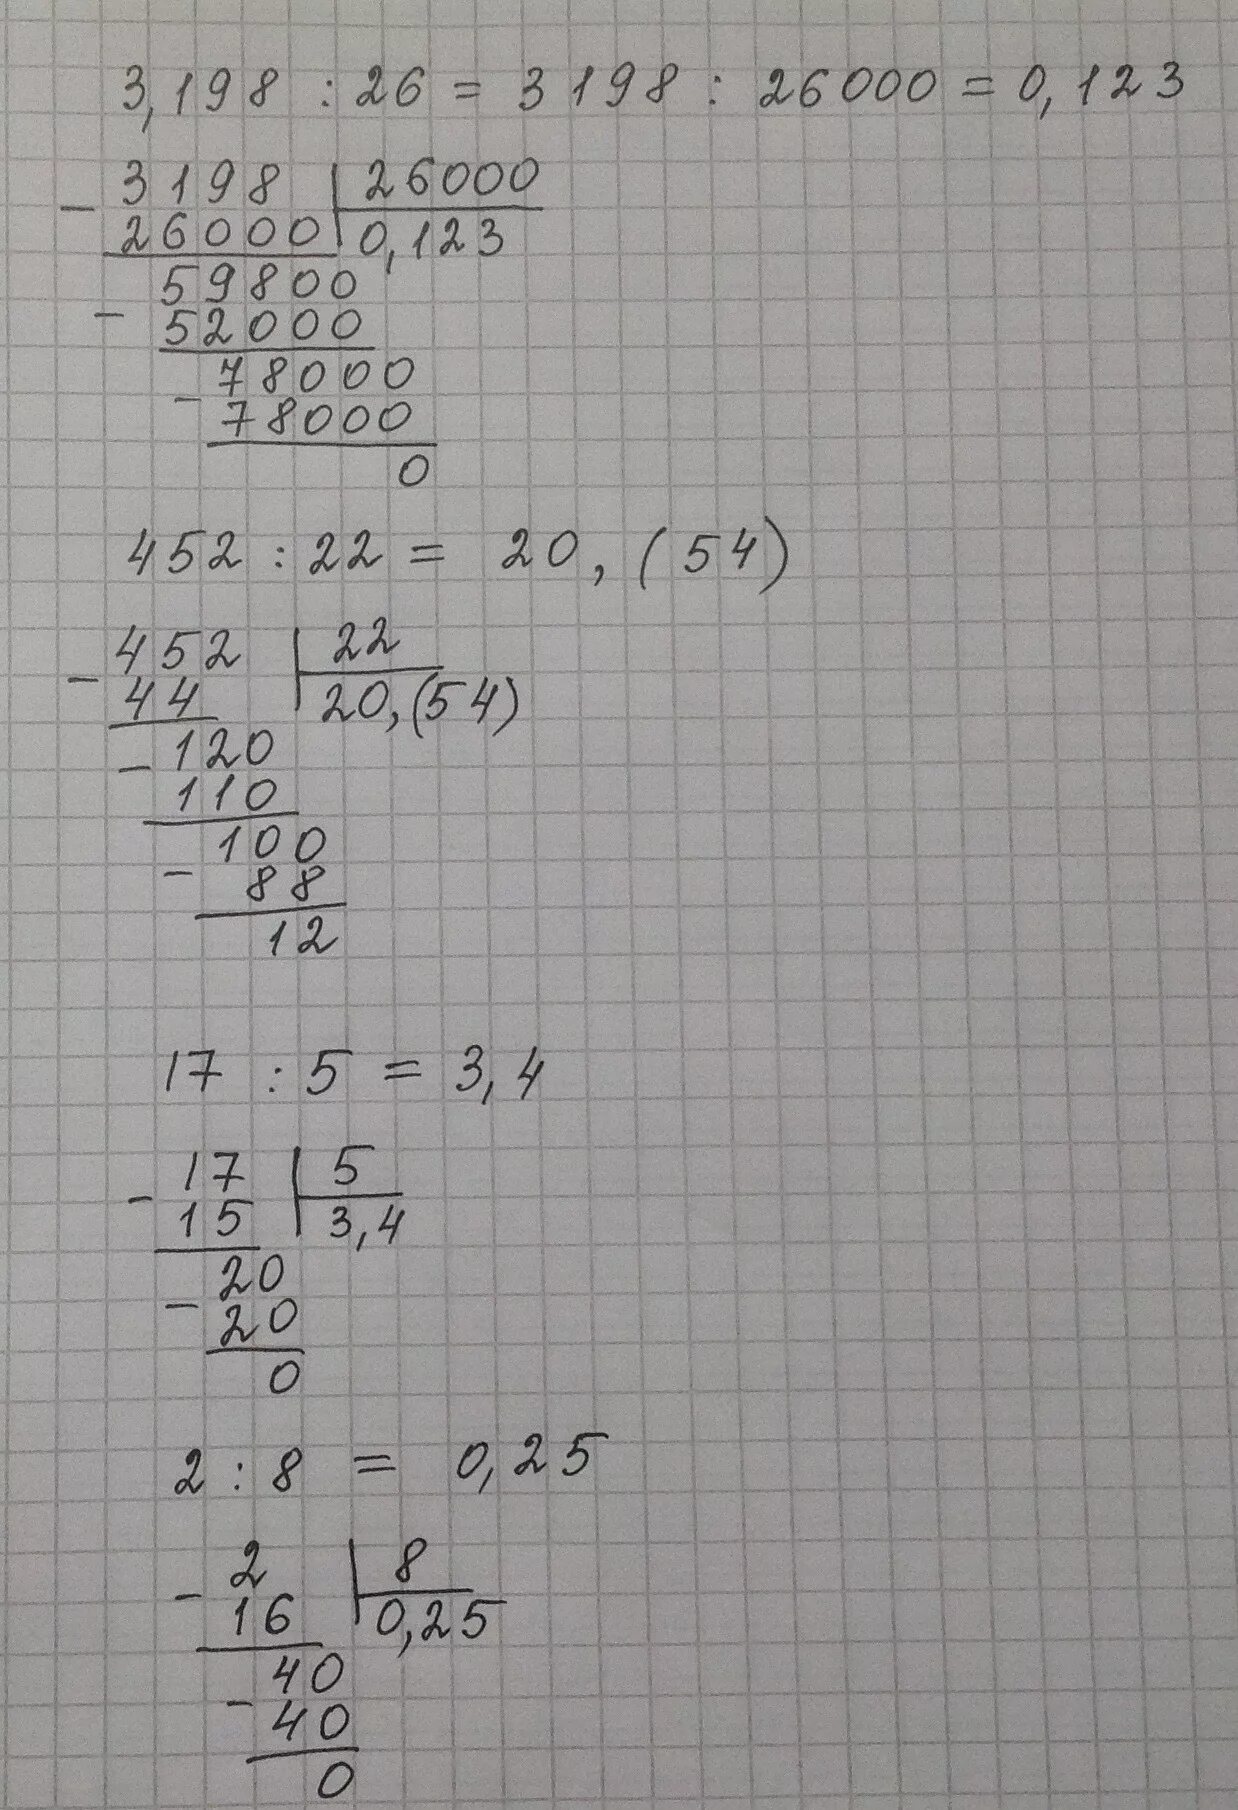 3,198 : 26 = 3198 : 26000 = 0,123
- 3198 | 26000
26000 | 0,123
59800
- 52000
78000
- 78000
0
452 : 22 = 20,(54)
- 452 | 22
44 | 20,(54)
- 120
110
100
- 88
12
17 : 5 = 3,4
- 17 | 5
15 | 3,4
- 20
20
0
2 : 8 = 0,25
- 2 | 8
16 | 0,25
40
- 40
0